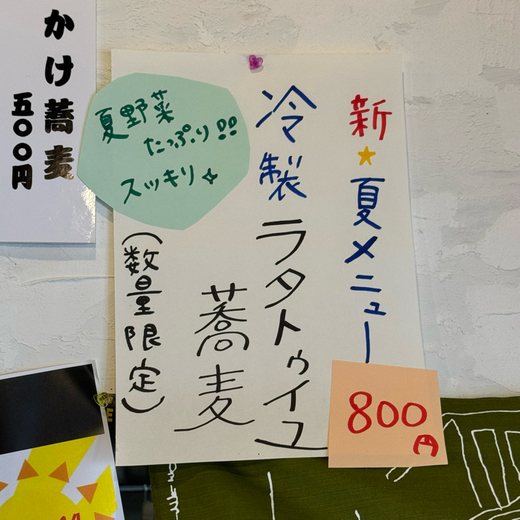 かけ蕎麦
五〇〇円
新★夏メニュー
冷製ラタトゥイユ
蕎麦
(数量限定)
夏野菜
たっぷり!!
スッキリ✧
800
円